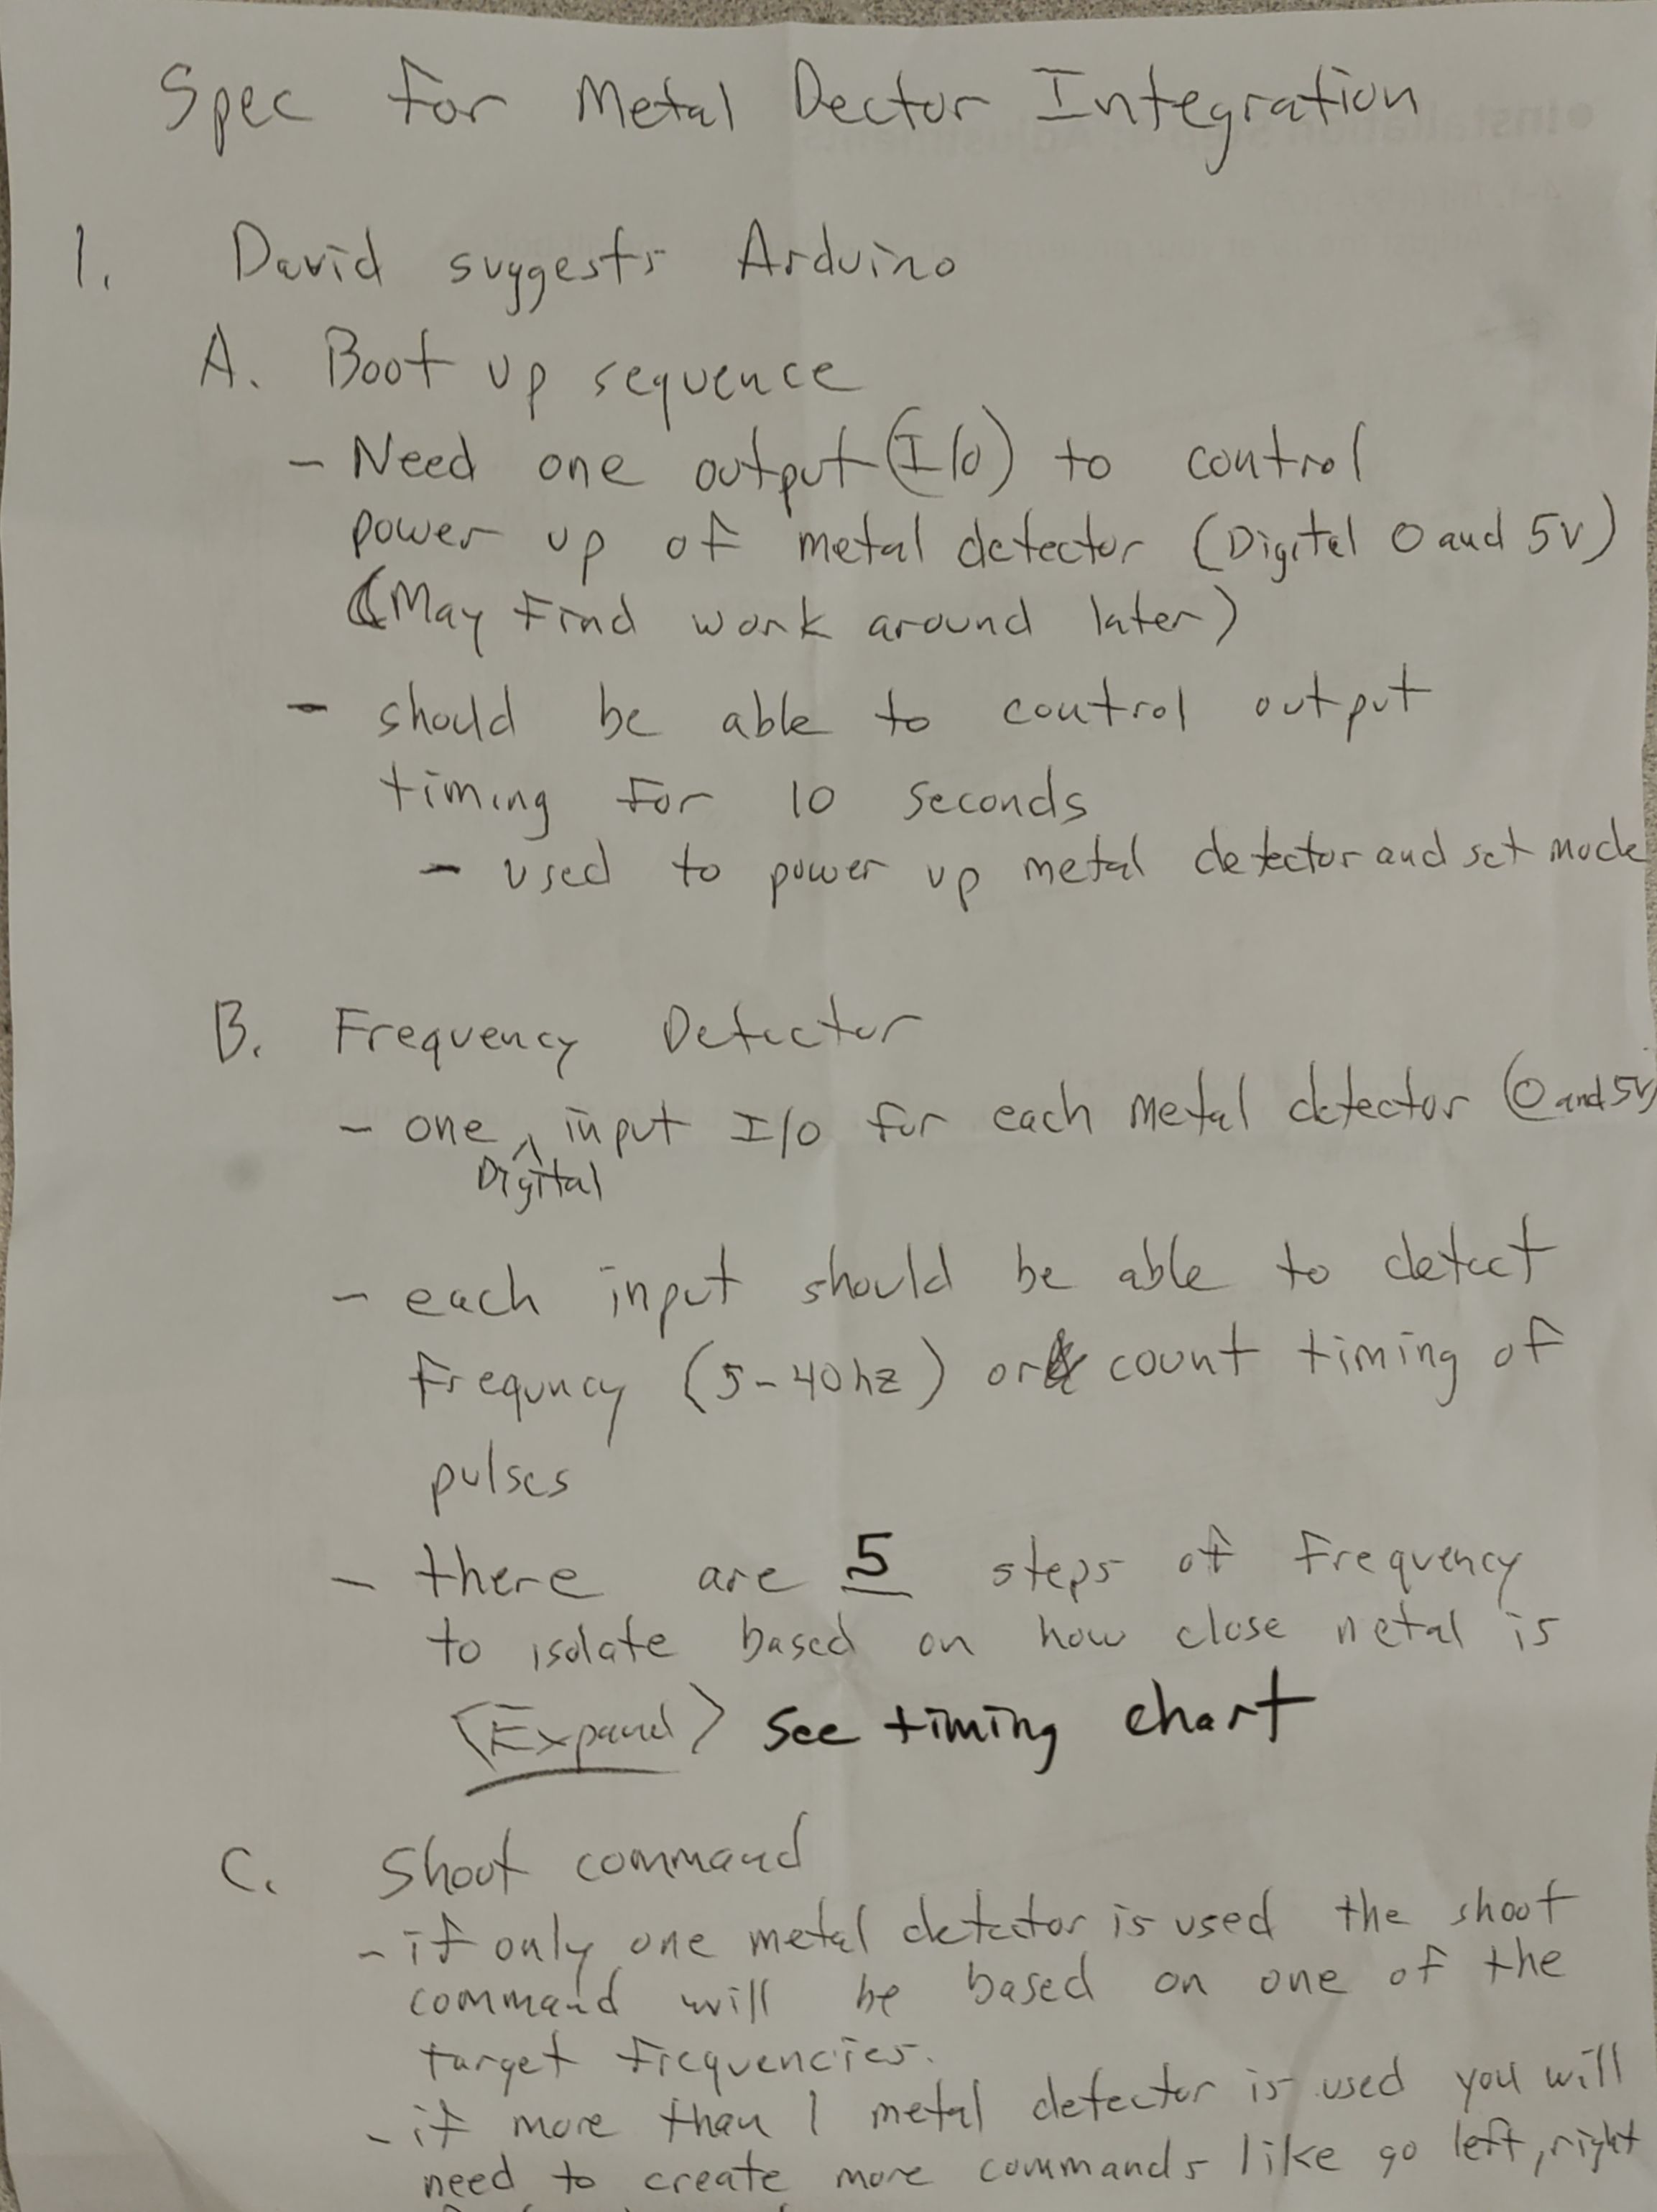 Spec for Metal Dector Integration
1. David suggests Arduino
A. Boot up sequence
- Need one output (I/O) to control
power up of metal detector (Digital 0 and 5V)
(May Find work around later)
- should be able to control output
timing for 10 seconds
- used to power up metal detector and set mode
B. Frequency Detector
- one ^ input I/O for each metal detector (0 and 5V)
Digital
- each input should be able to detect
frequncy (5-40hz) or count timing of
pulses
- there are 5 steps of frequency
to isolate based on how close metal is
(Expand) see timing chart
C. Shoot command
- if only one metal detector is used the shoot
command will be based on one of the
target frequencies.
- if more than 1 metal detector is used you will
need to create more commands like go left, right